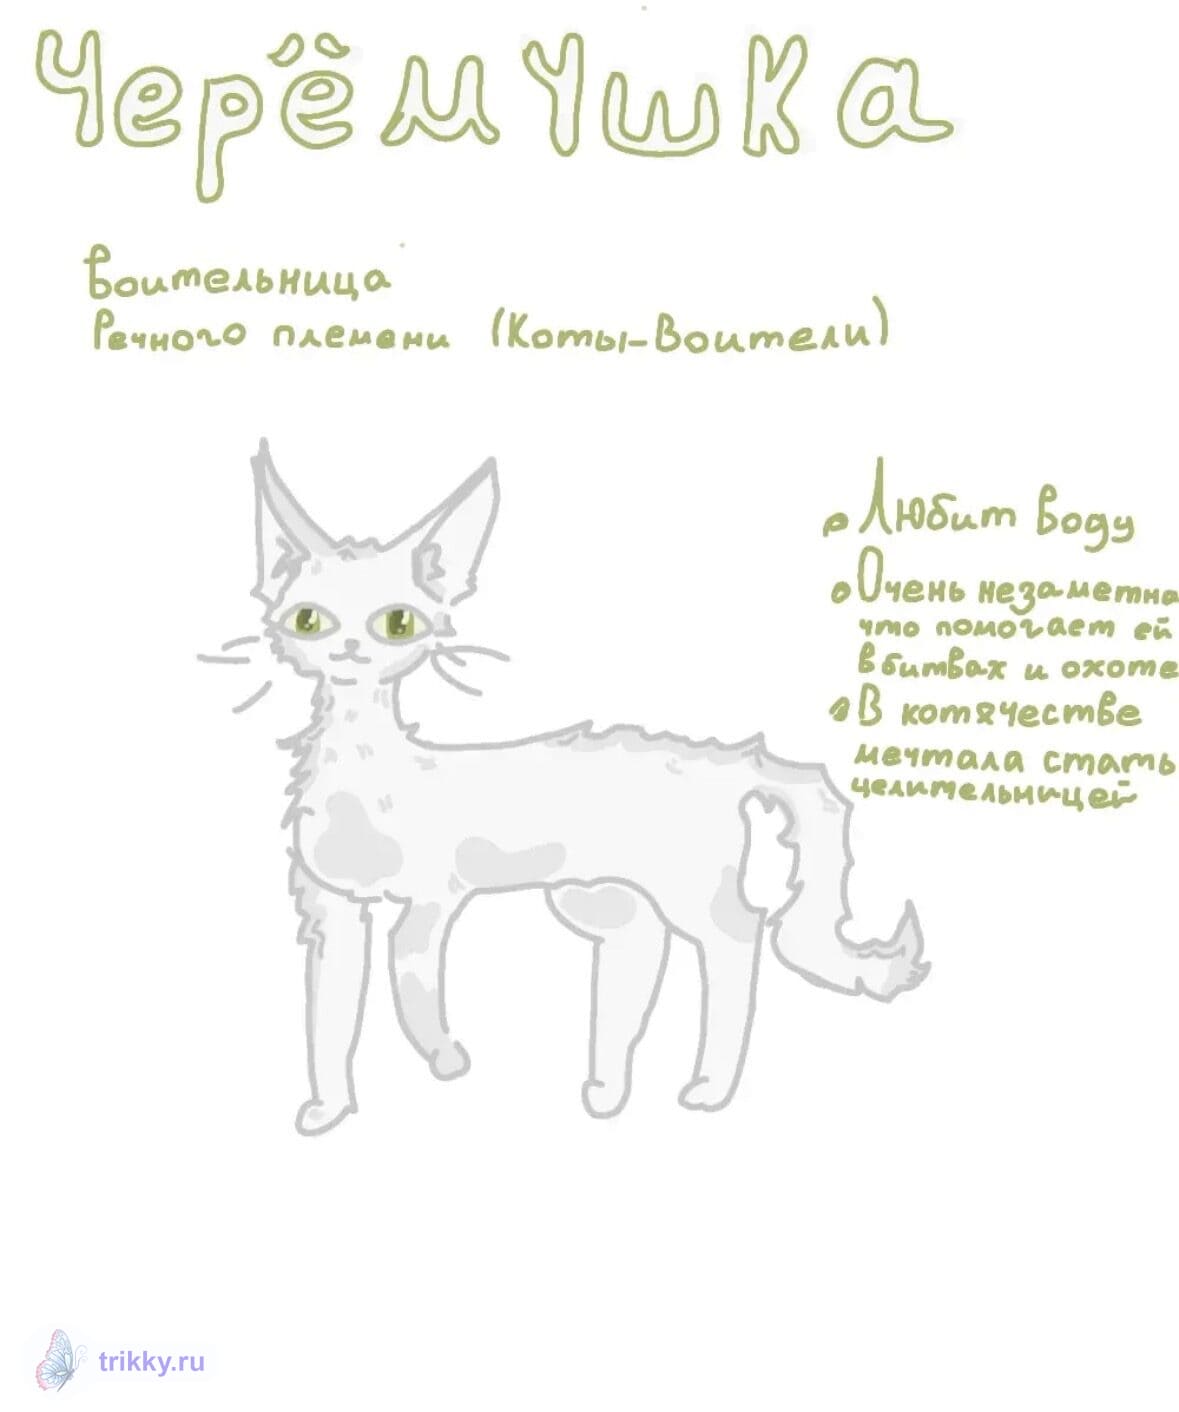 Черёмушка
Воительница
Речного племени (Коты-Воители)
Любит воду
Очень незаметна
что помогает ей
в битвах и охоте
В котячестве
мечтала стать
целительницей
trikky.ru